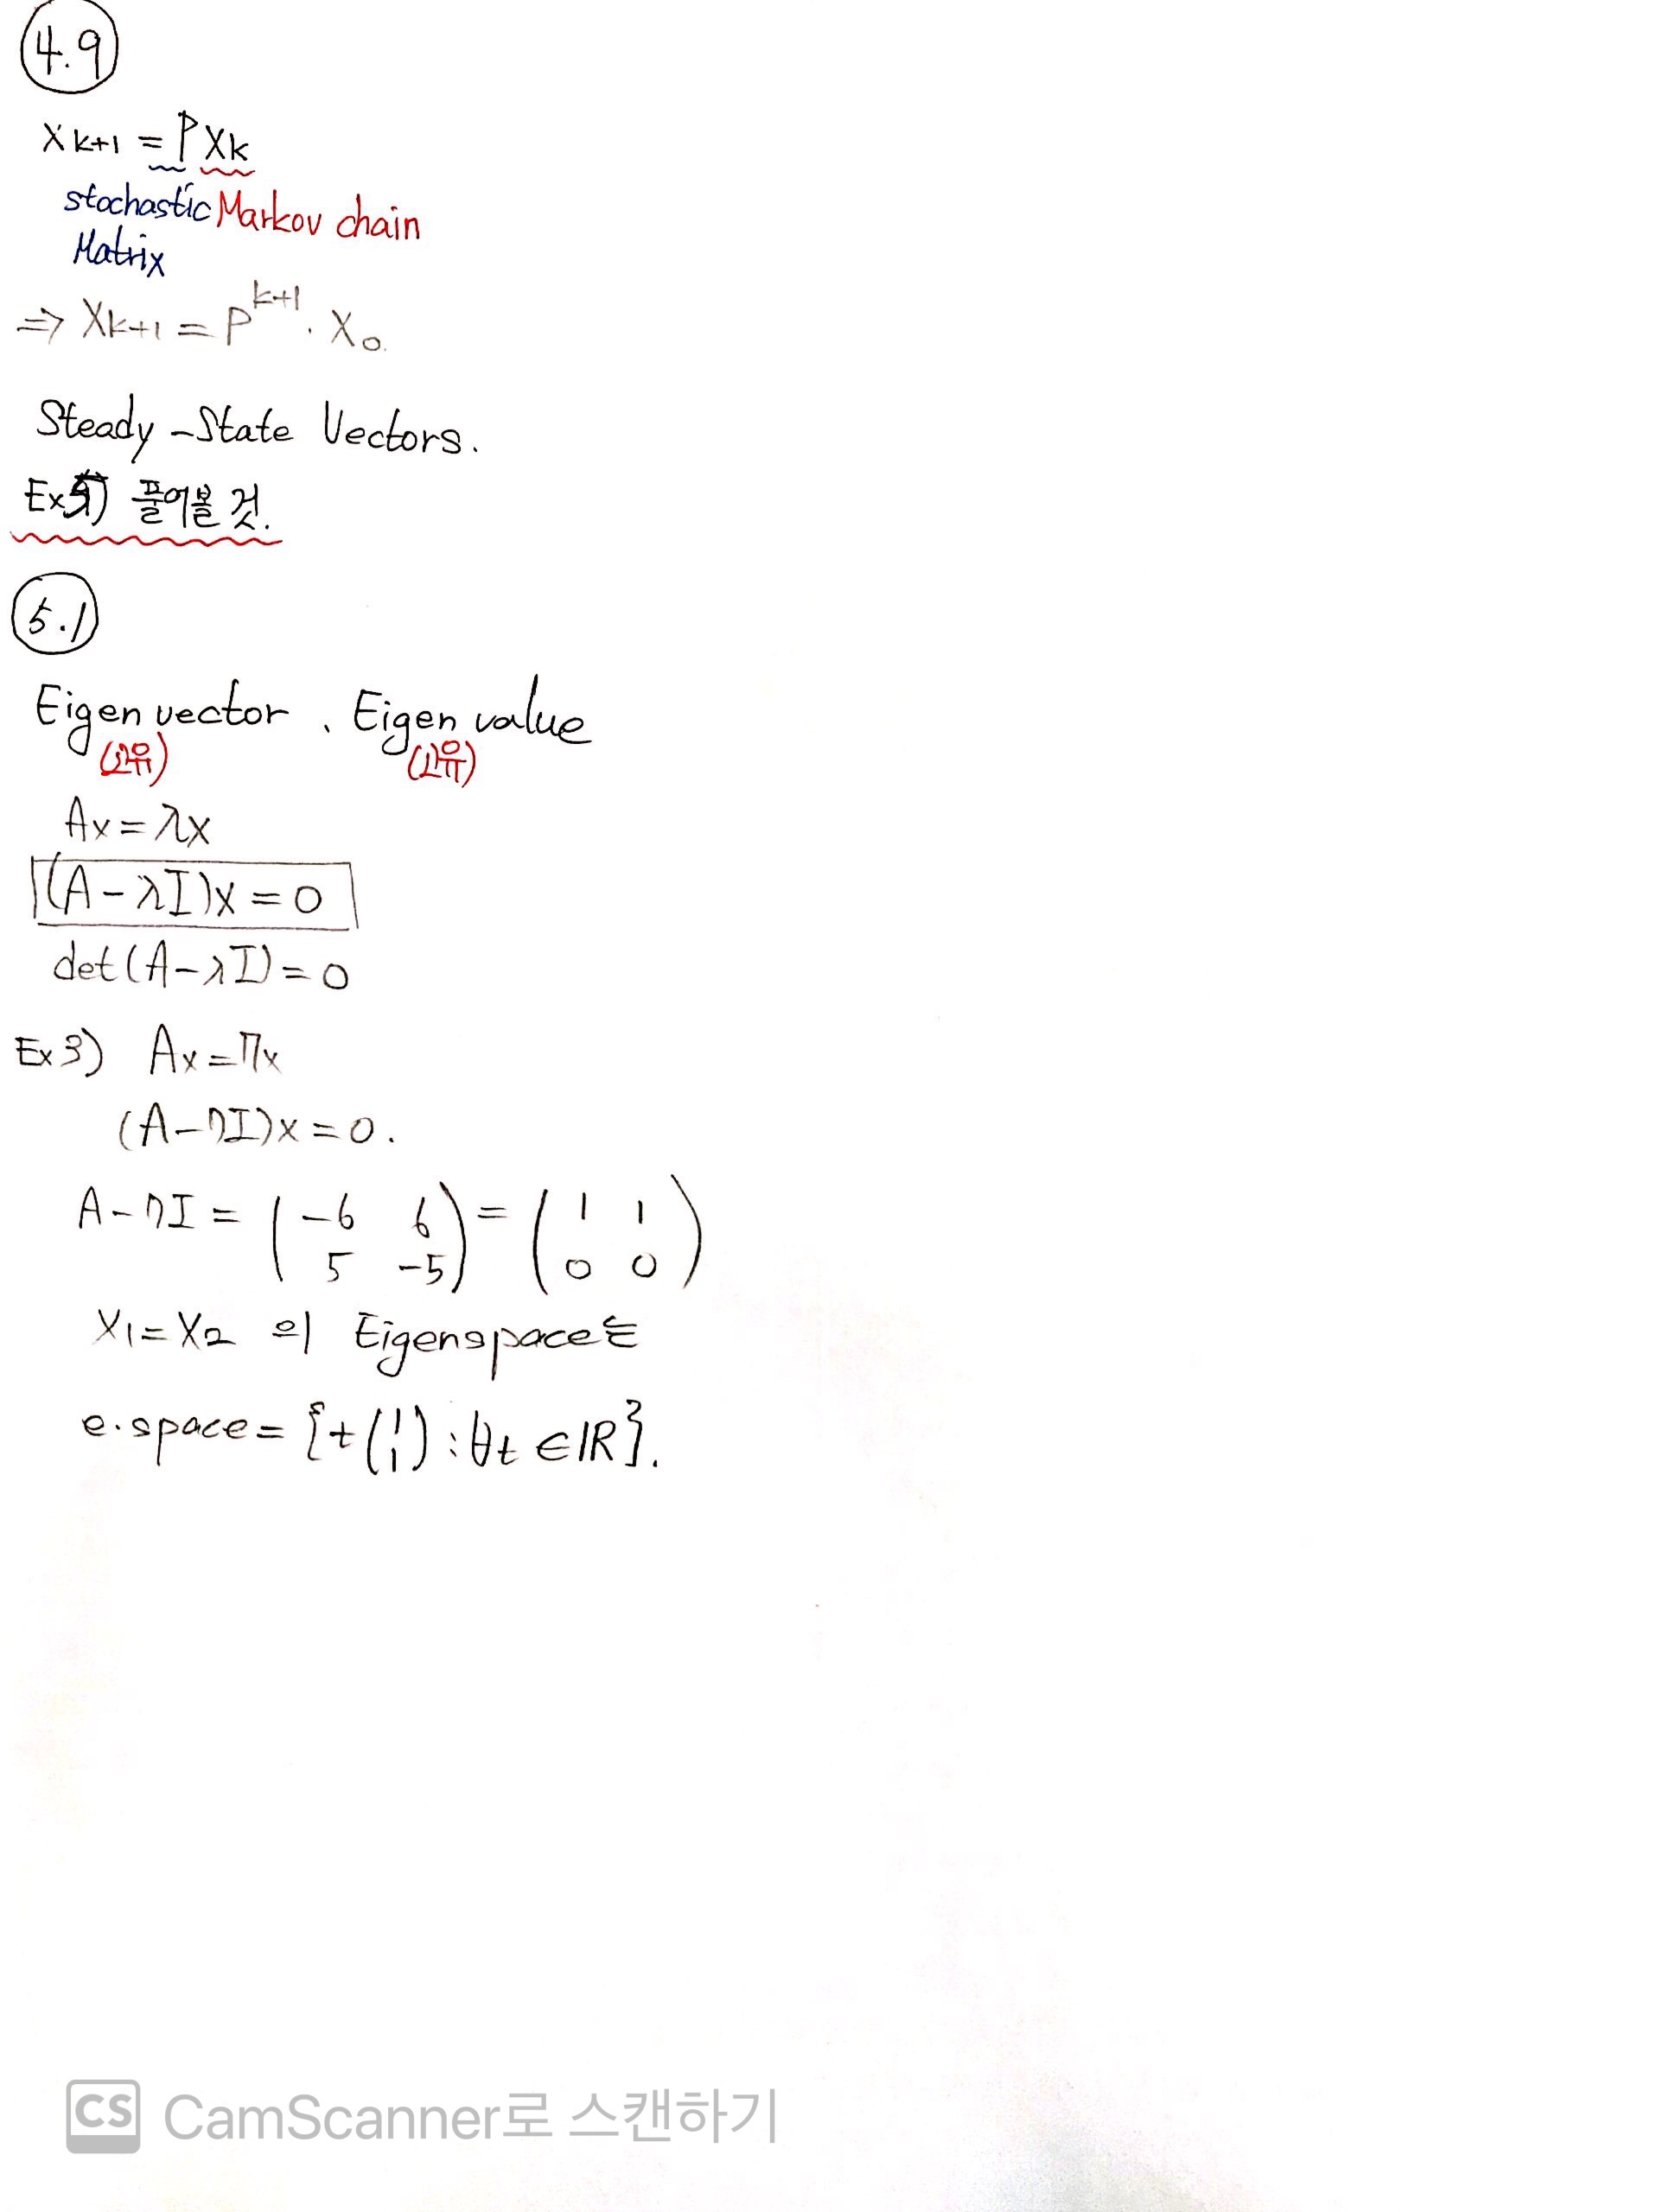 4.9
Xk+1 = PXk
stochastic Markov chain
Matrix
⇒ Xk+1 = P^k+1 · X0.
Steady-State Vectors.
Ex5) 풀어볼 것.
5.1
Eigen vector, Eigen value
(고유) (고유)
Ax = λx
(A-λI)x = 0
det(A-λI) = 0
Ex 3) Ax = 7x
(A-7I)x = 0.
A-7I = (-6 6 = (1 1
5 -5) 0 0)
X1 = X2 의 Eigenspace는
e.space = {t(1 1) : ∀t ∈ ℝ}.
CS CamScanner로 스캔하기